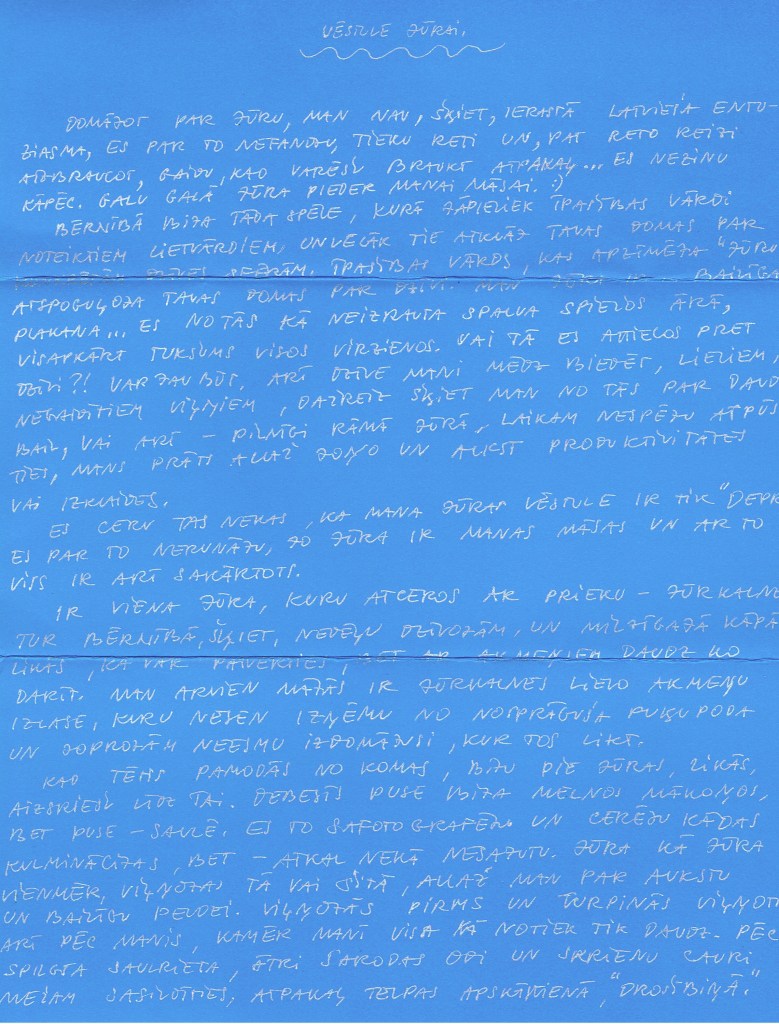 VĒSTULE JŪRAI.
DOMĀJOT PAR JŪRU, MAN NAV, ŠĶIET, IERASTĀ LATVIEŠA ENTU-
ZIASMA, ES PAR TO NEFANOJU, TIEKU RETI UN, PAT RETO REIZI
AIZBRAUCOT, GAIDU, KAD VARĒŠU BRAUKT ATPAKAĻ... ES NEZINU
KĀPĒC. GALU GALĀ JŪRA PIEDER MANAI MĀSAI. :)
BĒRNĪBĀ BIJA TĀDA SPĒLE, KURĀ JĀPIELIEK ĪPAŠĪBAS VĀRDI
NOTEIKTIEM LIETVĀRDIEM, UN VĒLĀK TIE ATKLĀJ TAVAS DOMAS PAR
ĪPAŠĪBAS VĀRDS, KAS APZĪMĒJA "JŪRU
ATSPOGUĻOJA TAVAS DOMAS PAR DZĪVI. MAN BAILĪGA
PLAKANA... ES NO TĀS KĀ NEIZRAUTA SPALVA SPIEŽOS ĀRĀ,
VISAPKĀRT TUKŠUMS VISOS VIRZIENOS. VAI TĀ ES ATTIECOS PRET
DZĪVI?! VAR JAU BŪT, ARĪ DZĪVE MANI MĒDZ BIEDĒT, LIELIEM,
NEGAIDĪTIEM VIĻŅIEM, DAŽREIZ ŠĶIET MAN NO TĀS PAR DAUDZ
BAIL, VAI ARĪ – PILNĪGI RĀMĀ JŪRĀ, LAIKAM NESPĒJU ATPŪS
TIES, MANS PRĀTS ALLAŽ JOŅO UN ALKST PRODUKTIVITĀTES
VAI IZKLAIDES.
ES CERU TAS NEKAS, KA MANA JŪRAS VĒSTULE IR TIK "DEPR
ES PAR TO NERUNĀJU, JO JŪRA IR MANAS MĀSAS UN AR TO
VISS IR ARĪ SAKĀRTOTS.
IR VIENA JŪRA, KURU ATCEROS AR PRIEKU – JŪRKALNE
TUR BĒRNĪBĀ, ŠĶIET, NEDĒĻU DZĪVOJĀM, UN MILZĪGAJĀ KĀPĀ
LIKĀS, KA VAR BET AR AKMEŅIEM DAUDZ KO
DARĪT. MAN ARVIEN MĀJĀS IR JŪRKALNES LIELO AKMEŅU
IZLASE, KURU NESEN IZŅĒMU NO NOSPRĀGUŠA PUĶU PODA
UN JOPROJĀM NEESMU IZDOMĀJUSI, KUR TOS LIKT.
KAD TĒTIS PAMODĀS NO KOMAS, BIJU PIE JŪRAS, LIKĀS,
AIZSKRIEŠU LĪDZ TAI. DEBESĪS PUSE BIJA MELNOS MĀKOŅOS,
BET PUSE – SAULĒ. ES TO SAFOTOGRAFĒJU UN CERĒJU KĀDAS
KULMINĀCIJAS, BET – ATKAL NEKĀ NESAJUTU. JŪRA KĀ JŪRA
VIENMĒR, VIĻŅOJAS TĀ VAI ŠITĀ, ALLAŽ MAN PAR AUKSTU
UN BAILĪGU PELDEI. VIĻŅOJĀS PIRMS UN TURPINĀS VIĻŅOTI
ARĪ PĒC MANIS, KAMĒR MANĪ VISA KĀ NOTIEK TIK DAUDZ. PĒC
SPILGTA SAULRIETA, ĀTRI SARODAS ODI UN SKRIENU CAURI
MEŽAM SASILDĪTIES, ATPAKAĻ TELPAS APSKĀVIENĀ, "DROŠĪBIŅĀ."